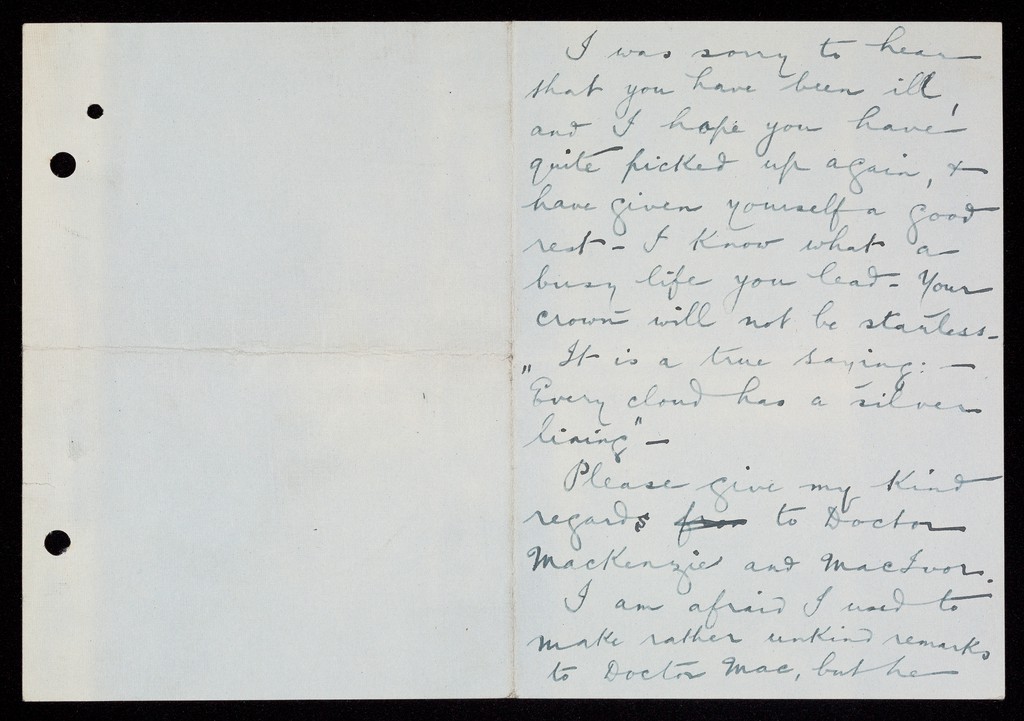 I was sorry to hear
that you have been ill,
and I hope you have
quite picked up again, +
have given yourself a good
rest - I know what a
busy life you lead - Your
crown will not be starless -
„ It is a true saying: -
Every cloud has a silver
lining" -
Please give my kind
regards to Doctor
MacKenzie and MacIvor.
I am afraid I used to
make rather unkind remarks
to Doctor Mac, but he